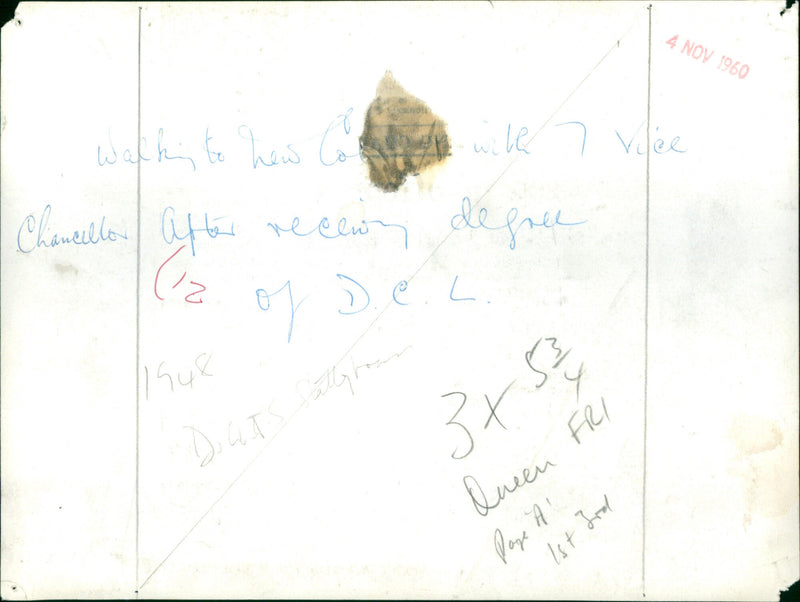 4 NOV 1960
Walking to New with Vice
Chancellor After receiving degree
of D.C.L.
1948
3 X 5 3/4
FRI
Queen
Page 'A'
1st 3rd